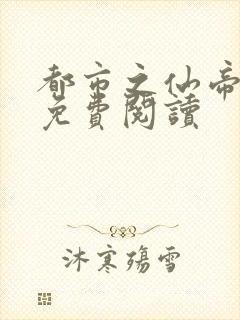 都市之仙帝
免費閱讀
沐寒殤雪